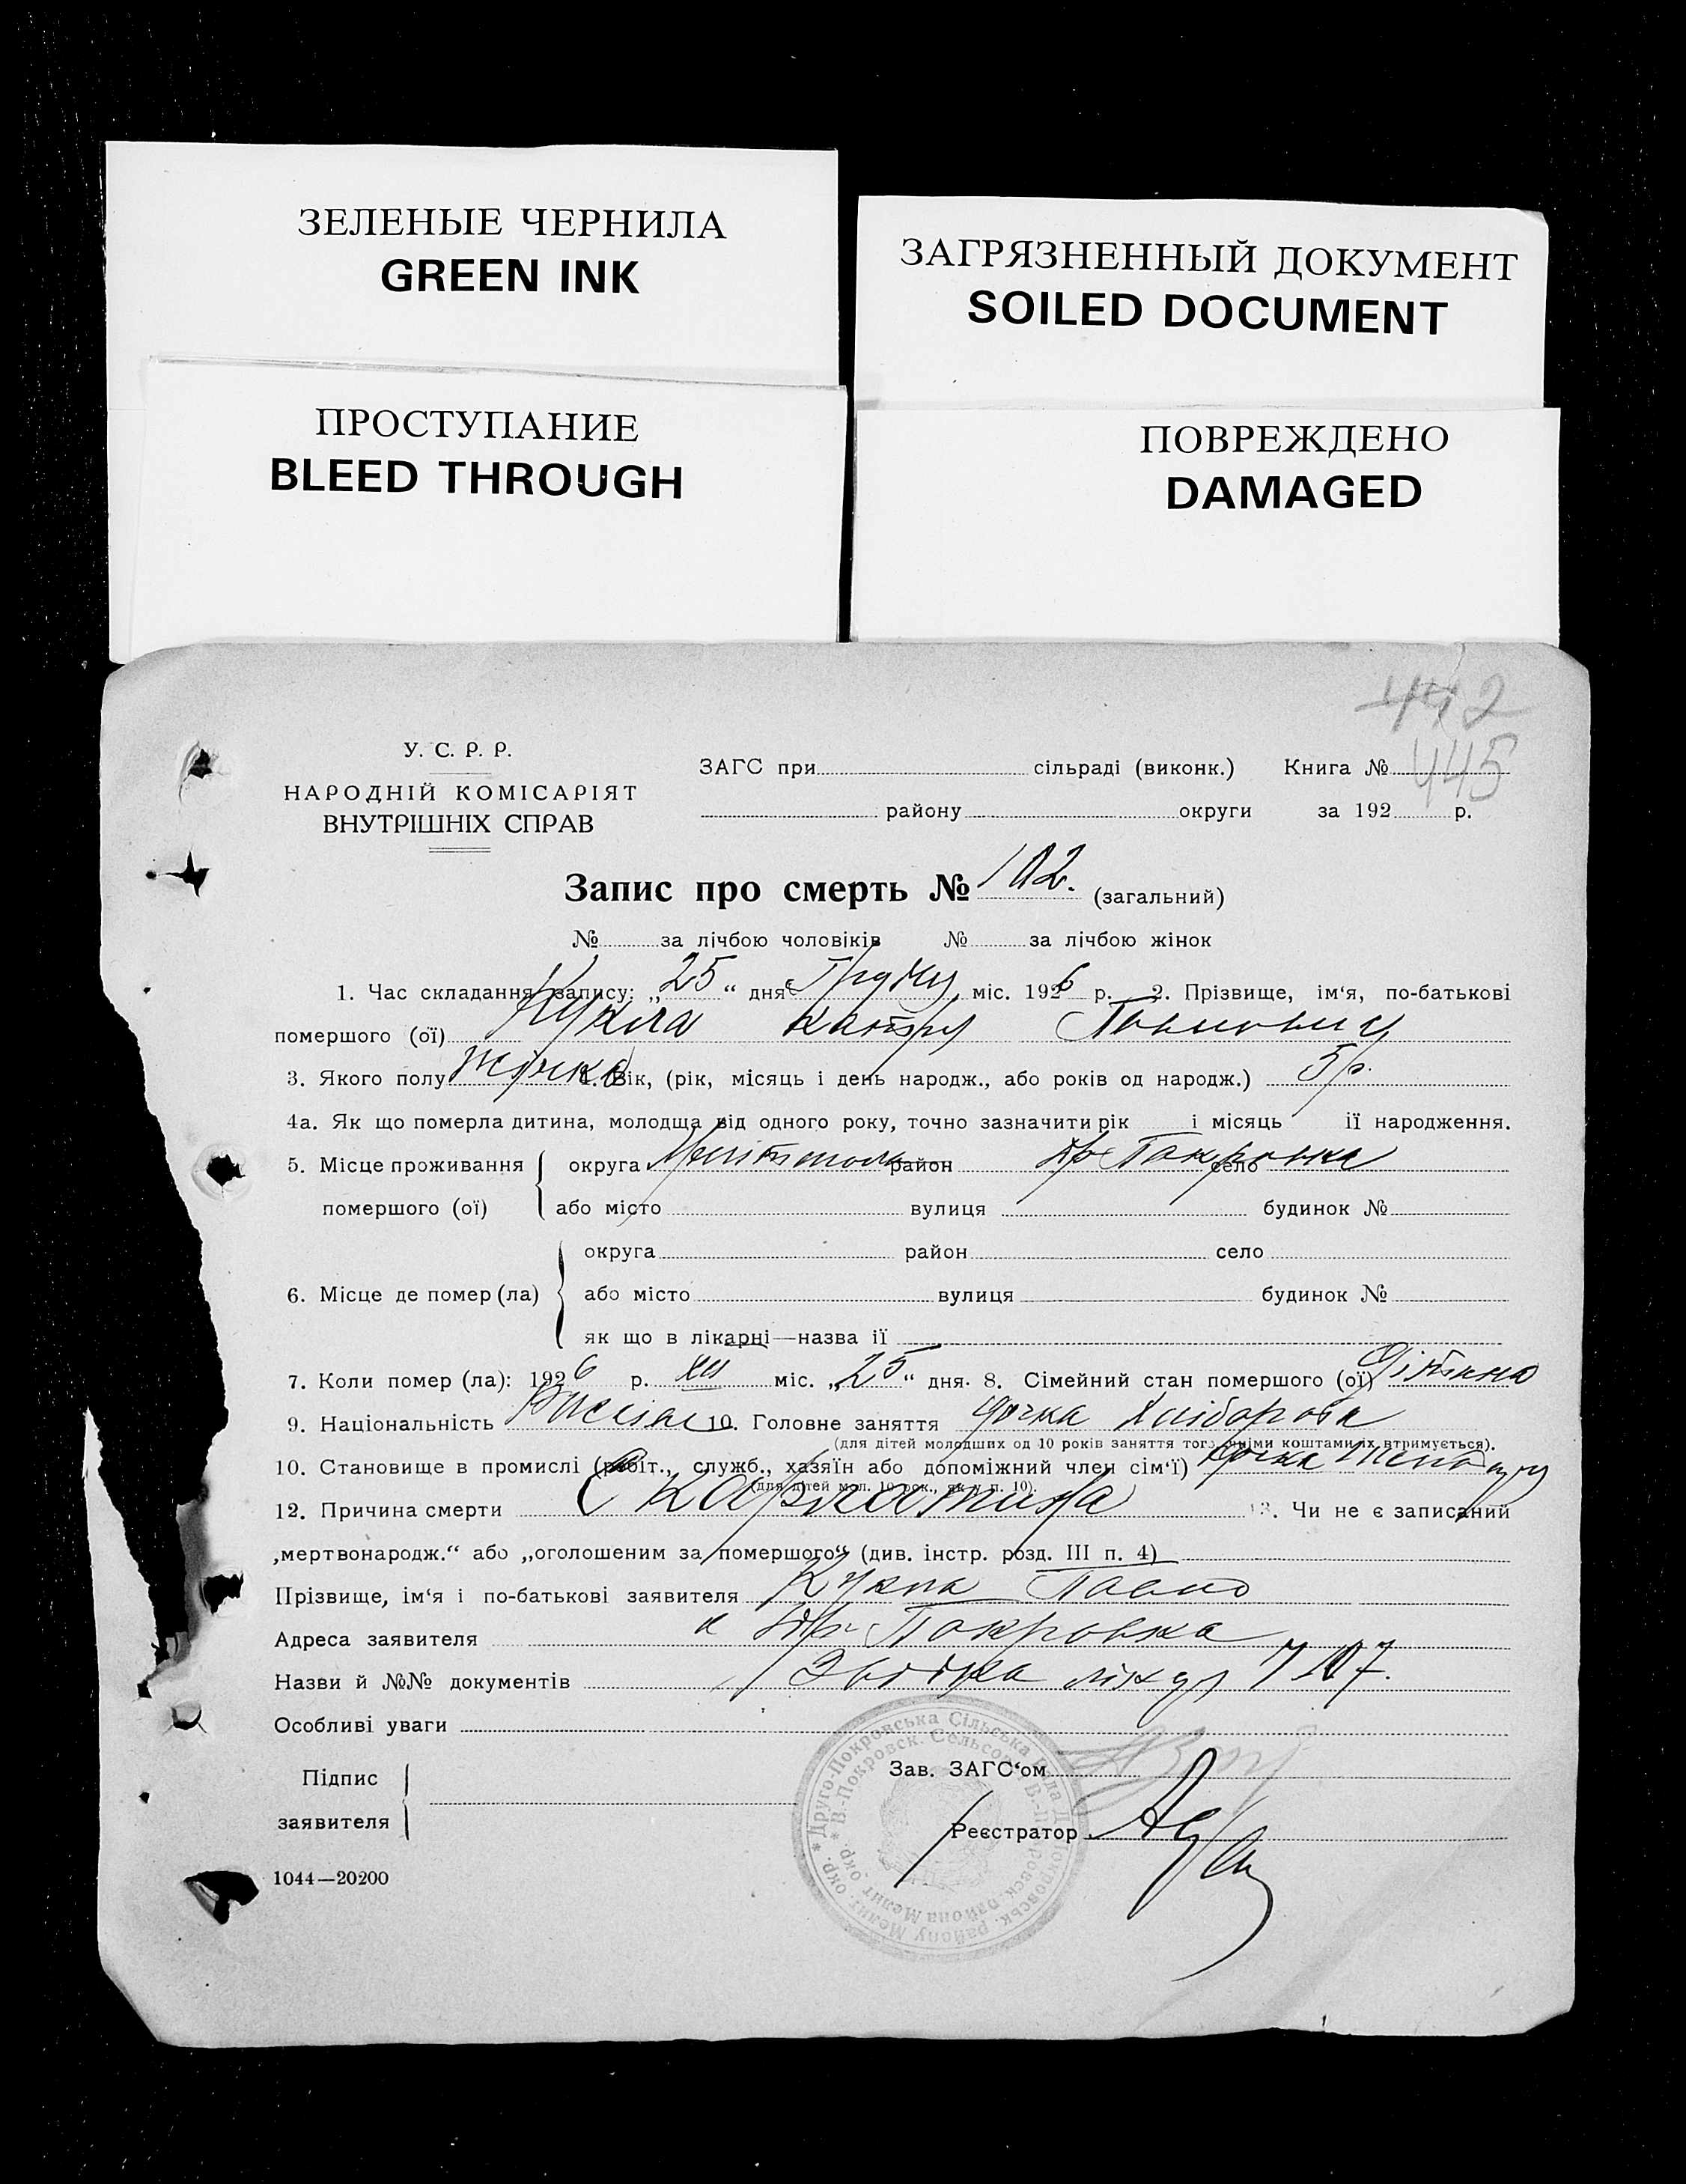 ЗЕЛЕНЫЕ ЧЕРНИЛА
GREEN INK
ЗАГРЯЗНЕННЫЙ ДОКУМЕНТ
SOILED DOCUMENT
ПРОСТУПАНИЕ
BLEED THROUGH
ПОВРЕЖДЕНО
DAMAGED
442
445
У. С. Р. Р.
НАРОДНІЙ КОМІСАРІЯТ
ВНУТРІШНІХ СПРАВ
ЗАГС при сільраді (виконк.) Книга №
району округи за 192 р.
Запис про смерть № 102. (загальний)
№ за лічбою чоловіків № за лічбою жінок
1. Час складання запису: „25“ дня міс. 1926 р. 2. Прізвище, ім‘я, по-батькові
помершого (ої) Кукла
3. Якого полу 4. Вік, (рік, місяць і день народж., або років од народж.) 5 р.
4а. Як що померла дитина, молодща від одного року, точно зазначити рік і місяць її народження.
5. Місце проживання округа район село Покровка
помершого (ої) або місто вулиця будинок №
округа район село
6. Місце де помер (ла) або місто вулиця будинок №
як що в лікарні—назва її
7. Коли помер (ла): 1926 р. XII міс. „25“ дня. 8. Сімейний стан помершого (ої) Дитина
9. Національність 10. Головне заняття дочка хлібороба
(для дітей молодших од 10 років заняття того, чиїми коштами їх втримується).
10. Становище в промислі (робіт., служб., хазяїн або допоміжний член сім‘ї) дочка
(для дітей мол. 10 рок., як у п. 10).
12. Причина смерти Скарлатина 13. Чи не є записаний
„мертвонародж.“ або „оголошеним за помершого“ (див. інстр. розд. III п. 4)
Прізвище, ім‘я і по-батькові заявителя Кукла Павло
Адреса заявителя Покровка
Назви й №№ документів 7107.
Особливі уваги
Підпис
заявителя
Зав. ЗАГС‘ом
Реєстратор
1044—20200